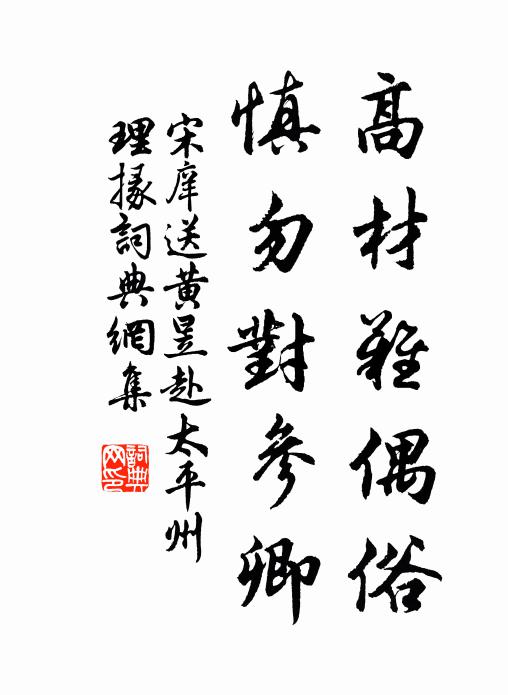 高材難偶俗
慎勿對參卿
宋庠送黃昱赴太平州
理掾詞典網集
詞典网印